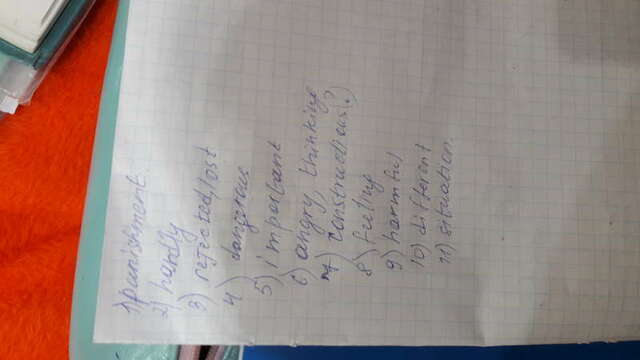 1) punishment.
2) hardly
3) rejected, lost
4) dangerous
5) important
6) angry, thinking
7) constructious(?)
8) fueling
9) harmful
10) different
11) situation.